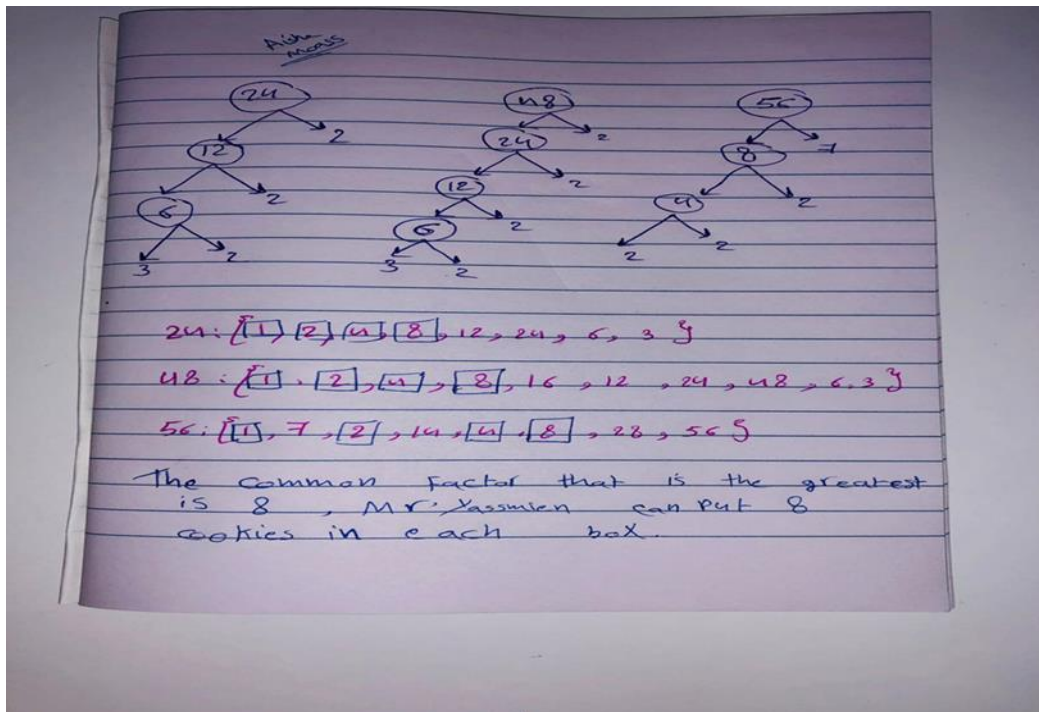 24 48 56
2 2
12 24 8 7
2 2 2
6 12 4
3 2 6 2 2 2
3 2
24: {1, 2, 4, 8, 12, 24, 6, 3}
48: {1, 2, 4, 8, 16, 12, 24, 48, 6, 3}
56: {1, 7, 2, 14, 4, 8, 28, 56}
The common Factor that is the greatest
is 8, Mr. Yassmien can put 8
cookies in each box.